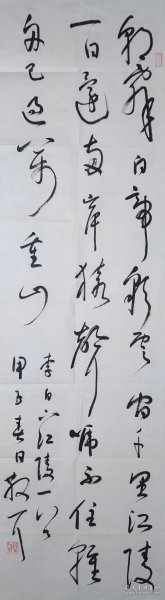 朝辞白帝彩云间千里江陵
一日还两岸猿声啼不住轻
舟已过万重山
李白下江陵一首
甲子春日敬一